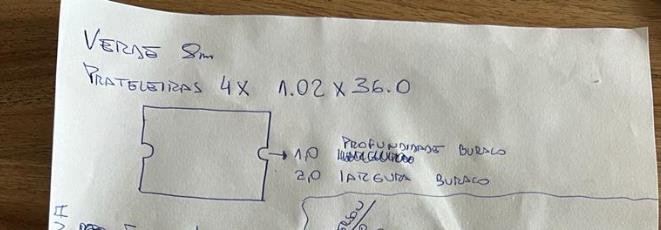 VERDE 8m
PRATELEIRAS 4X 1.02 X 36.0
1,0 PROFUNDIDADE BURACO
2,0 LARGURA BURACO